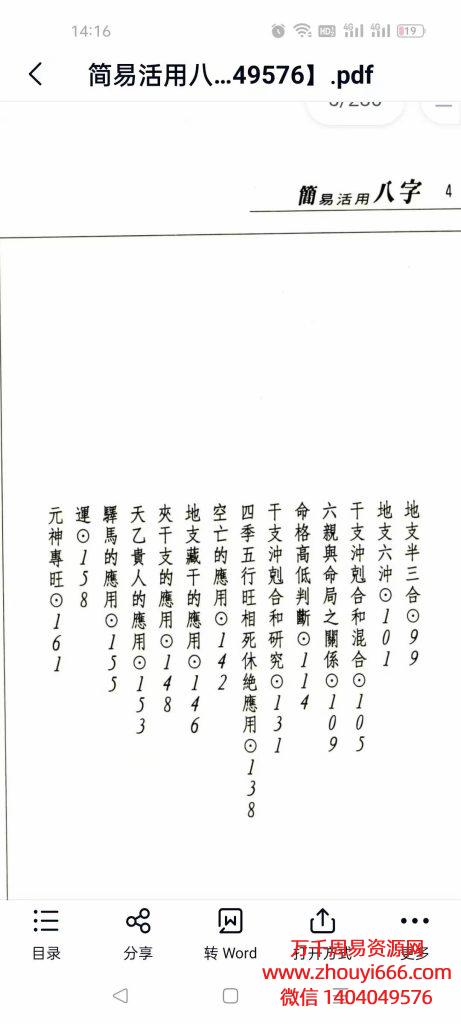 14:16
HD
4G
4G
19
简易活用八...49576】.pdf
簡易活用八字 4
地支半三合⊙99
地支六沖⊙101
干支沖剋合和混合⊙105
六親與命局之關係⊙109
命格高低判斷⊙114
干支沖剋合和研究⊙131
四季五行旺相死休絶應用⊙138
空亡的應用⊙142
地支藏干的應用⊙146
夾干支的應用⊙148
天乙貴人的應用⊙153
驛馬的應用⊙155
運⊙158
元神專旺⊙161
目录
分享
转 Word
打开方式
更多
万千周易资源网
www.zhouyi666.com
微信 1404049576